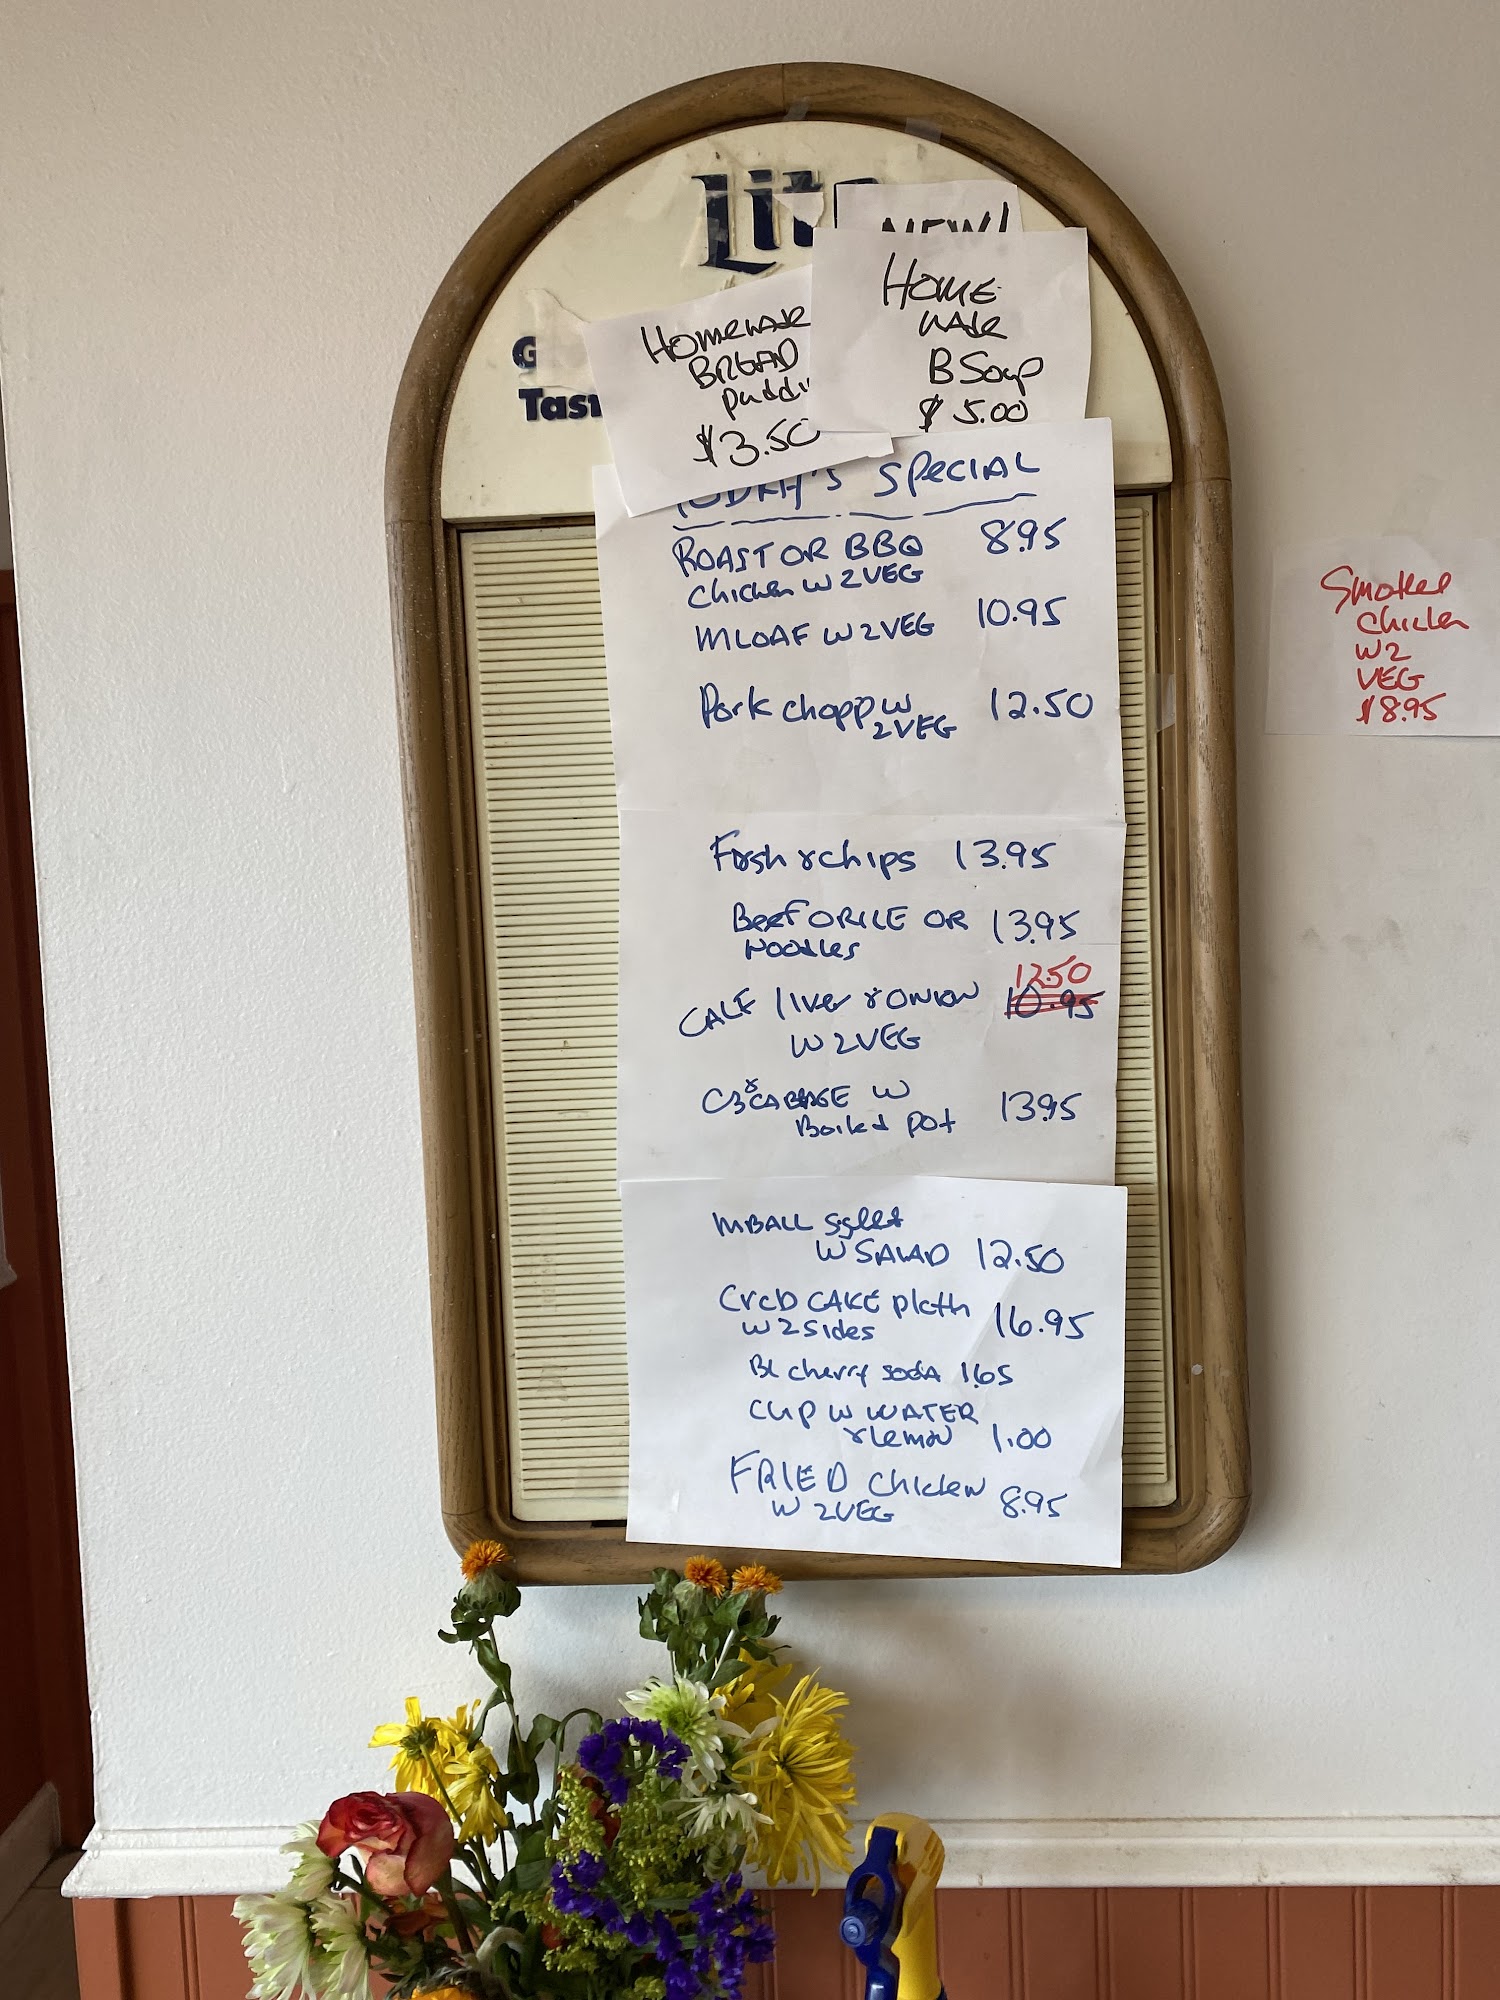 Lit
NEW!
G
Tast
HOMEMADE
BREAD
puddi
$3.50
HOME
MADE
B Soup
$ 5.00
TODAY'S SPECIAL
ROAST OR BBQ 8.95
chicken W 2 VEG
MLOAF W 2 VEG 10.95
Pork chopp W 12.50
2 VEG
Fish & chips 13.95
Beef O RICE OR 13.95
Noodles
12.50
CALF liver & ONION 10.95
W 2 VEG
CB & CABBAGE W 13.95
Boiled pot
MBALL
W SALAD 12.50
CAKE
W 2 sides 16.95
BL cherry soda 1.65
cup W WATER
& lemon 1.00
FRIED chicken
W 2 VEG 8.95
Smoked
chicken
W 2
VEG
$8.95